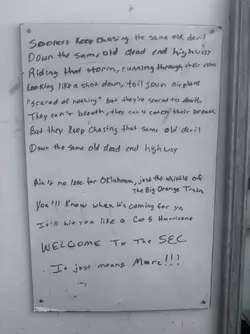 Sooners Keep Chasing the same old devil
Down the same old dead end highway
Riding that storm, running through their veins
Looking like a shot down, toil sown airplane
"scared of nothing" but they're scared to death
They can't breath, they can't catch their breath
But they Keep Chasing that same old devil
Down the same old dead end highway
Ain't no love for Oklahoma, just the whistle of
The Big Orange Train
You'll Know when it's coming for ya
It'll hit you like a Cat 5 Hurricane
WELCOME To The SEC
It just means More!!!